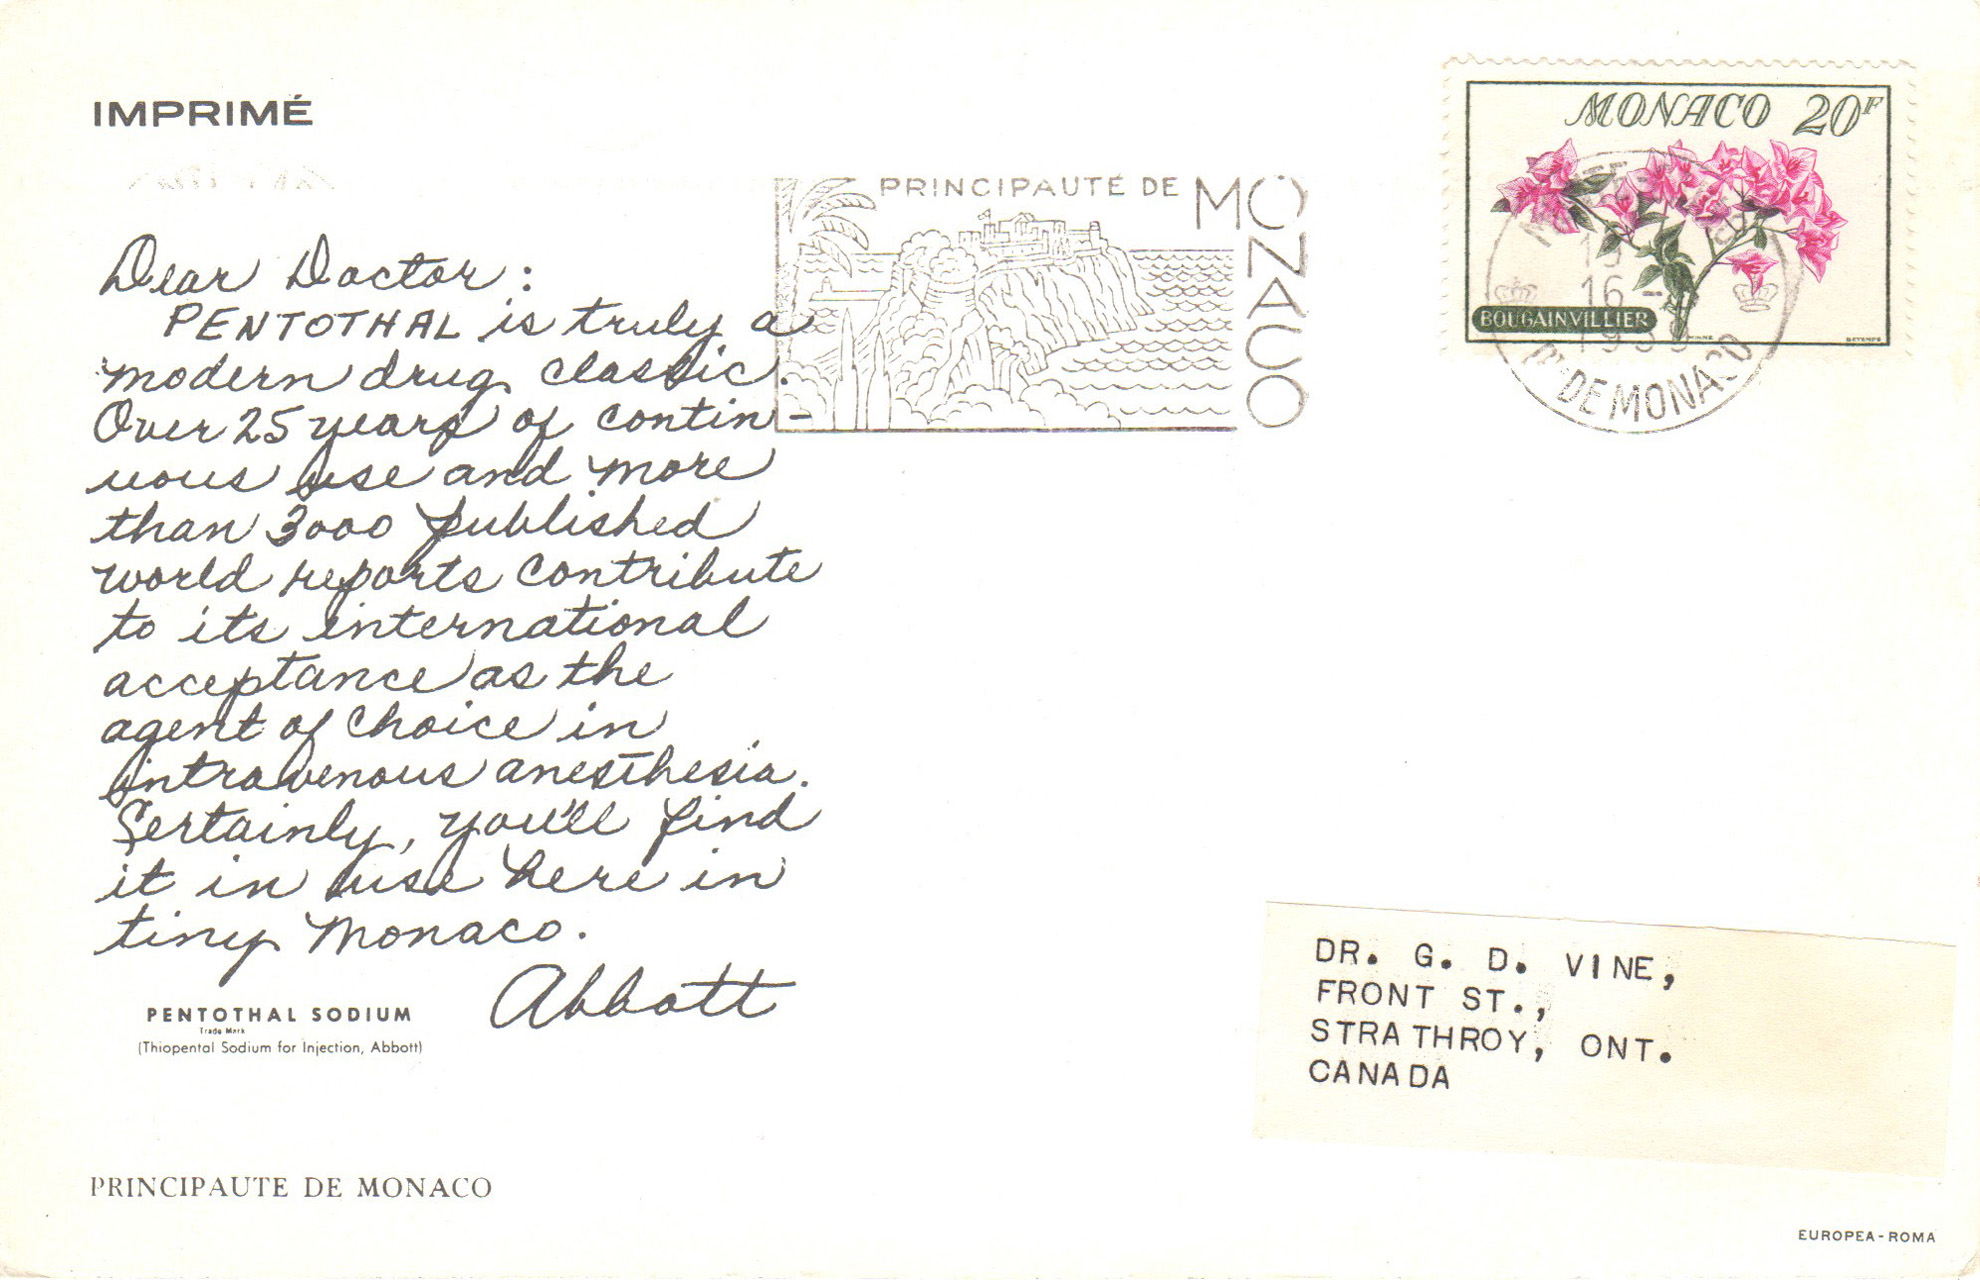 IMPRIMÉ
PRINCIPAUTÉ DE MONACO
MONACO 20F
BOUGAINVILLIER
16 -
DE MONACO
Dear Doctor:
PENTOTHAL is truly a
modern drug classic.
Over 25 years of contin-
uous use and more
than 3000 published
world reports contribute
to its international
acceptance as the
agent of choice in
intravenous anesthesia.
Certainly, you'll find
it in use here in
tiny Monaco.
Abbott
PENTOTHAL SODIUM
Trade Mark
(Thiopental Sodium for Injection, Abbott)
DR. G. D. VINE,
FRONT ST.,
STRATHROY, ONT.
CANADA
PRINCIPAUTE DE MONACO
EUROPEA-ROMA